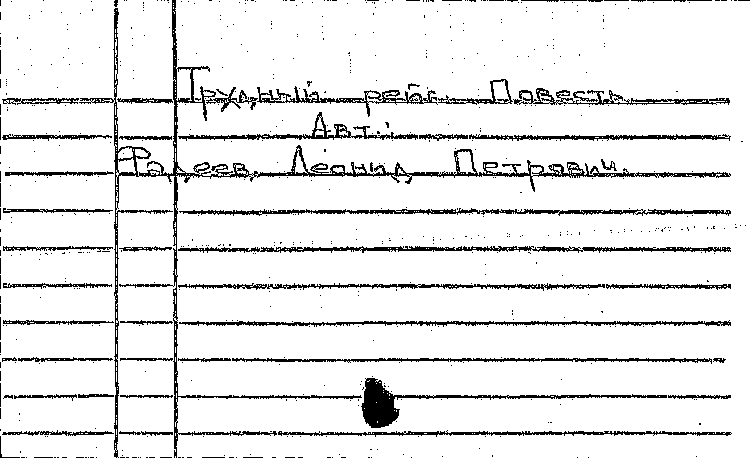 Трудный рейс. Повесть
Авт.:
Фадеев, Леонид Петрович.